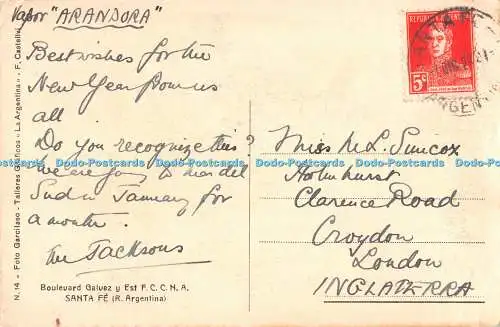 Vapor "ARANDORA"
Best wishes for the
New Year from us
all.
Do you recognize this?
We are going to Mar del
Sud in January for
a month.
The Jacksons
Boulevard Galvez y Est F. C. C. N. A.
SANTA FÉ (R. Argentina)
N. 14 - Foto Garcilaso - Talleres Gráficos "La Argentina" - F. Castellvi
REPUBLICA ARGENTINA
5c
SANTA FE
ARGENTINA
Miss M. L. Simcox
Holmhurst
Clarence Road
Croydon
London
INGLATERRA
Dodo-Postcards Dodo-Postcards Dodo-Postcards Dodo-Postcards Dodo-Postcards